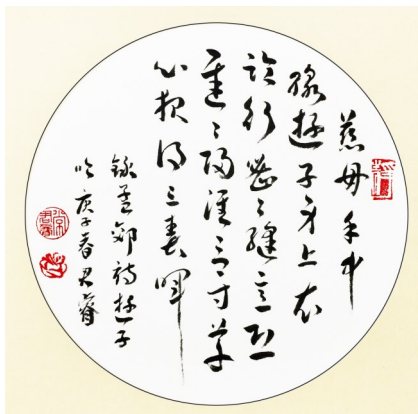 慈母手中
線遊子身上衣
臨行密〻縫意恐
遲〻歸誰言寸草
心報得三春暉
錄孟郊詩遊子
吟庚子春君